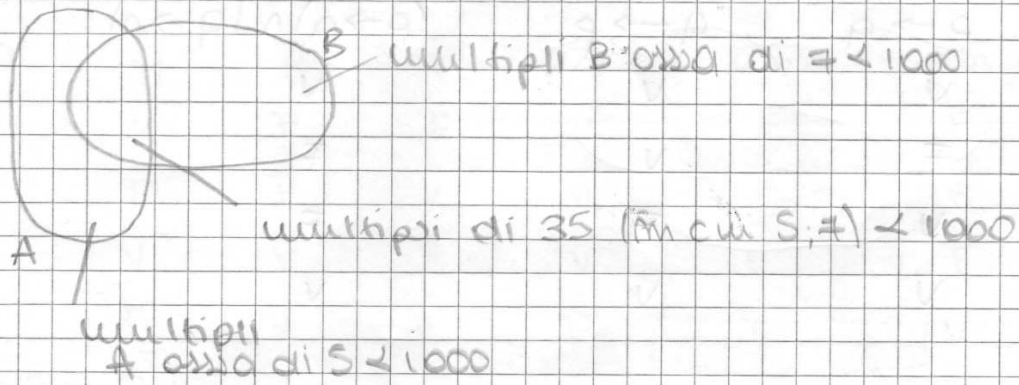 B multipli B ossia di 7 < 1000
multipli di 35 (in cui 5;7) < 1000
A
multipli
A ossia di 5 < 1000